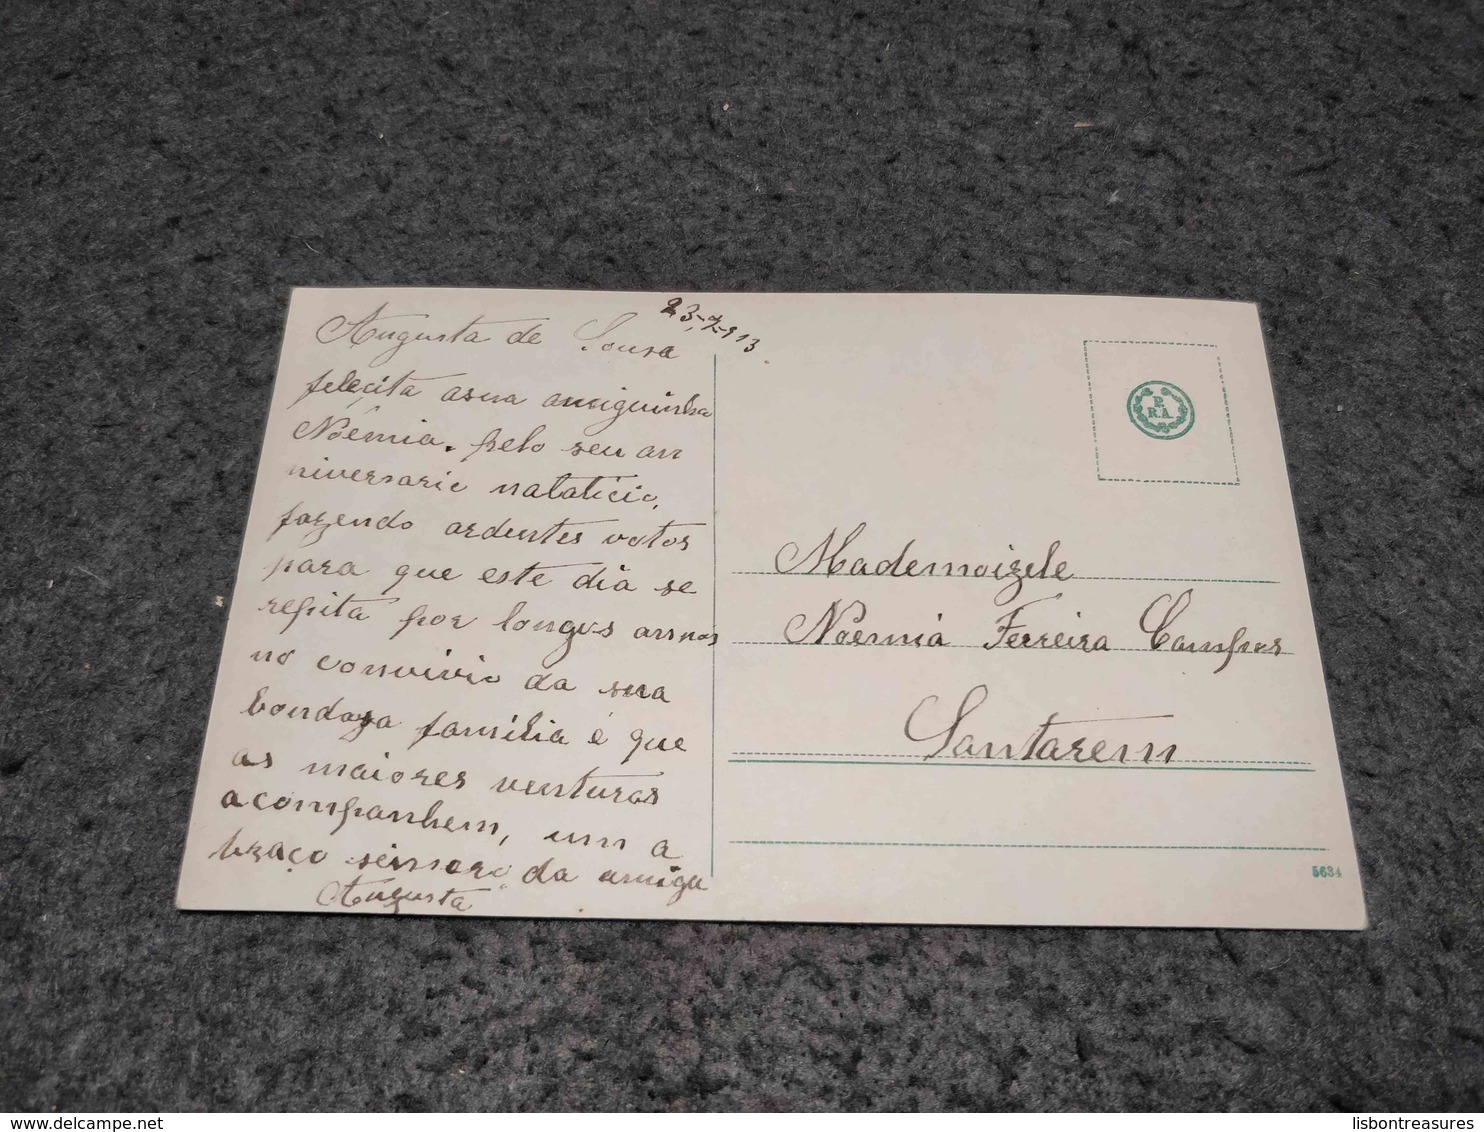 23-7-913
Augusta de Sousa
feleçita asua amiguinha
Noémia. pelo seu an
niversario natalicio,
fazendo ardentes votos
para que este dia se
repita por longos annos
no convivio da sua
bondaza família é que
as maiores venturas
acompanhem, um a
braço sinsero da amiga
Augusta
P.
R.A.
Mademoizele
Noemia Ferreira Campos
Santarem
5634
www.delcampe.net
lisbontreasures